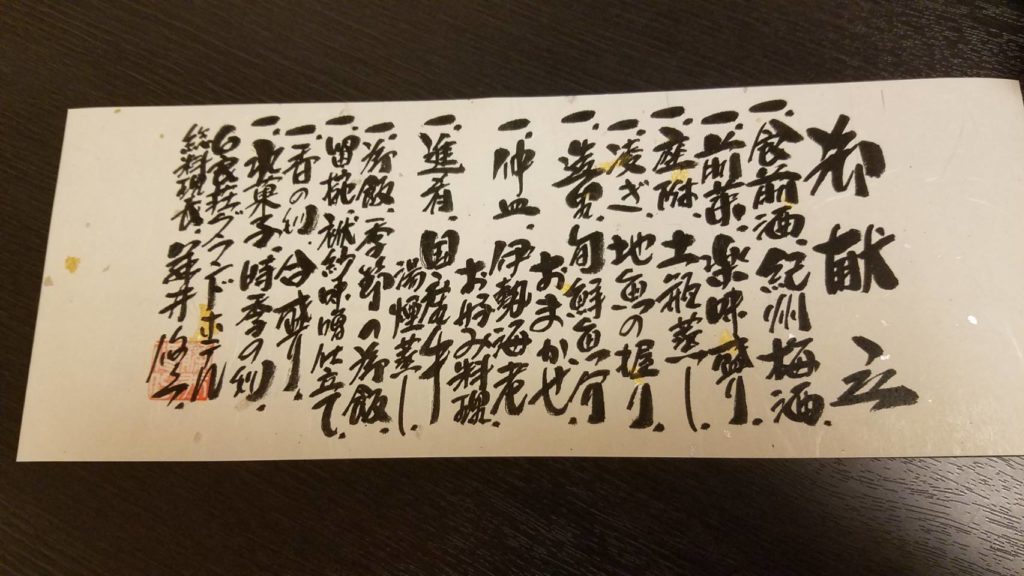 御献立
一、食前酒、紀州梅酒
一、前菜、楽味盛り
一、座附、土瓶蒸し
一、凌ぎ、地魚の握り
一、造里、旬鮮魚介
おまかせ
一、仲皿、伊勢海老
お好み料理
一、進肴、国産牛
湯煙蒸し
一、御飯、季節の御飯
一、留椀、献納味噌仕立て
一、香の物、合盛り
一、水菓子、時季の物
白良荘グランドホテル
総料理長、笹井